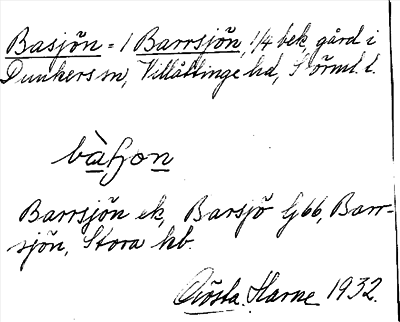 Basjön = 1 Barrsjön, 1/4 bek, gård i
Dunkers sn, Villåttinge hd, Sörml. l.
Barrsjön ek, Barsjö G66, Barr-
sjön, Stora hb.
Gösta Harne 1932.